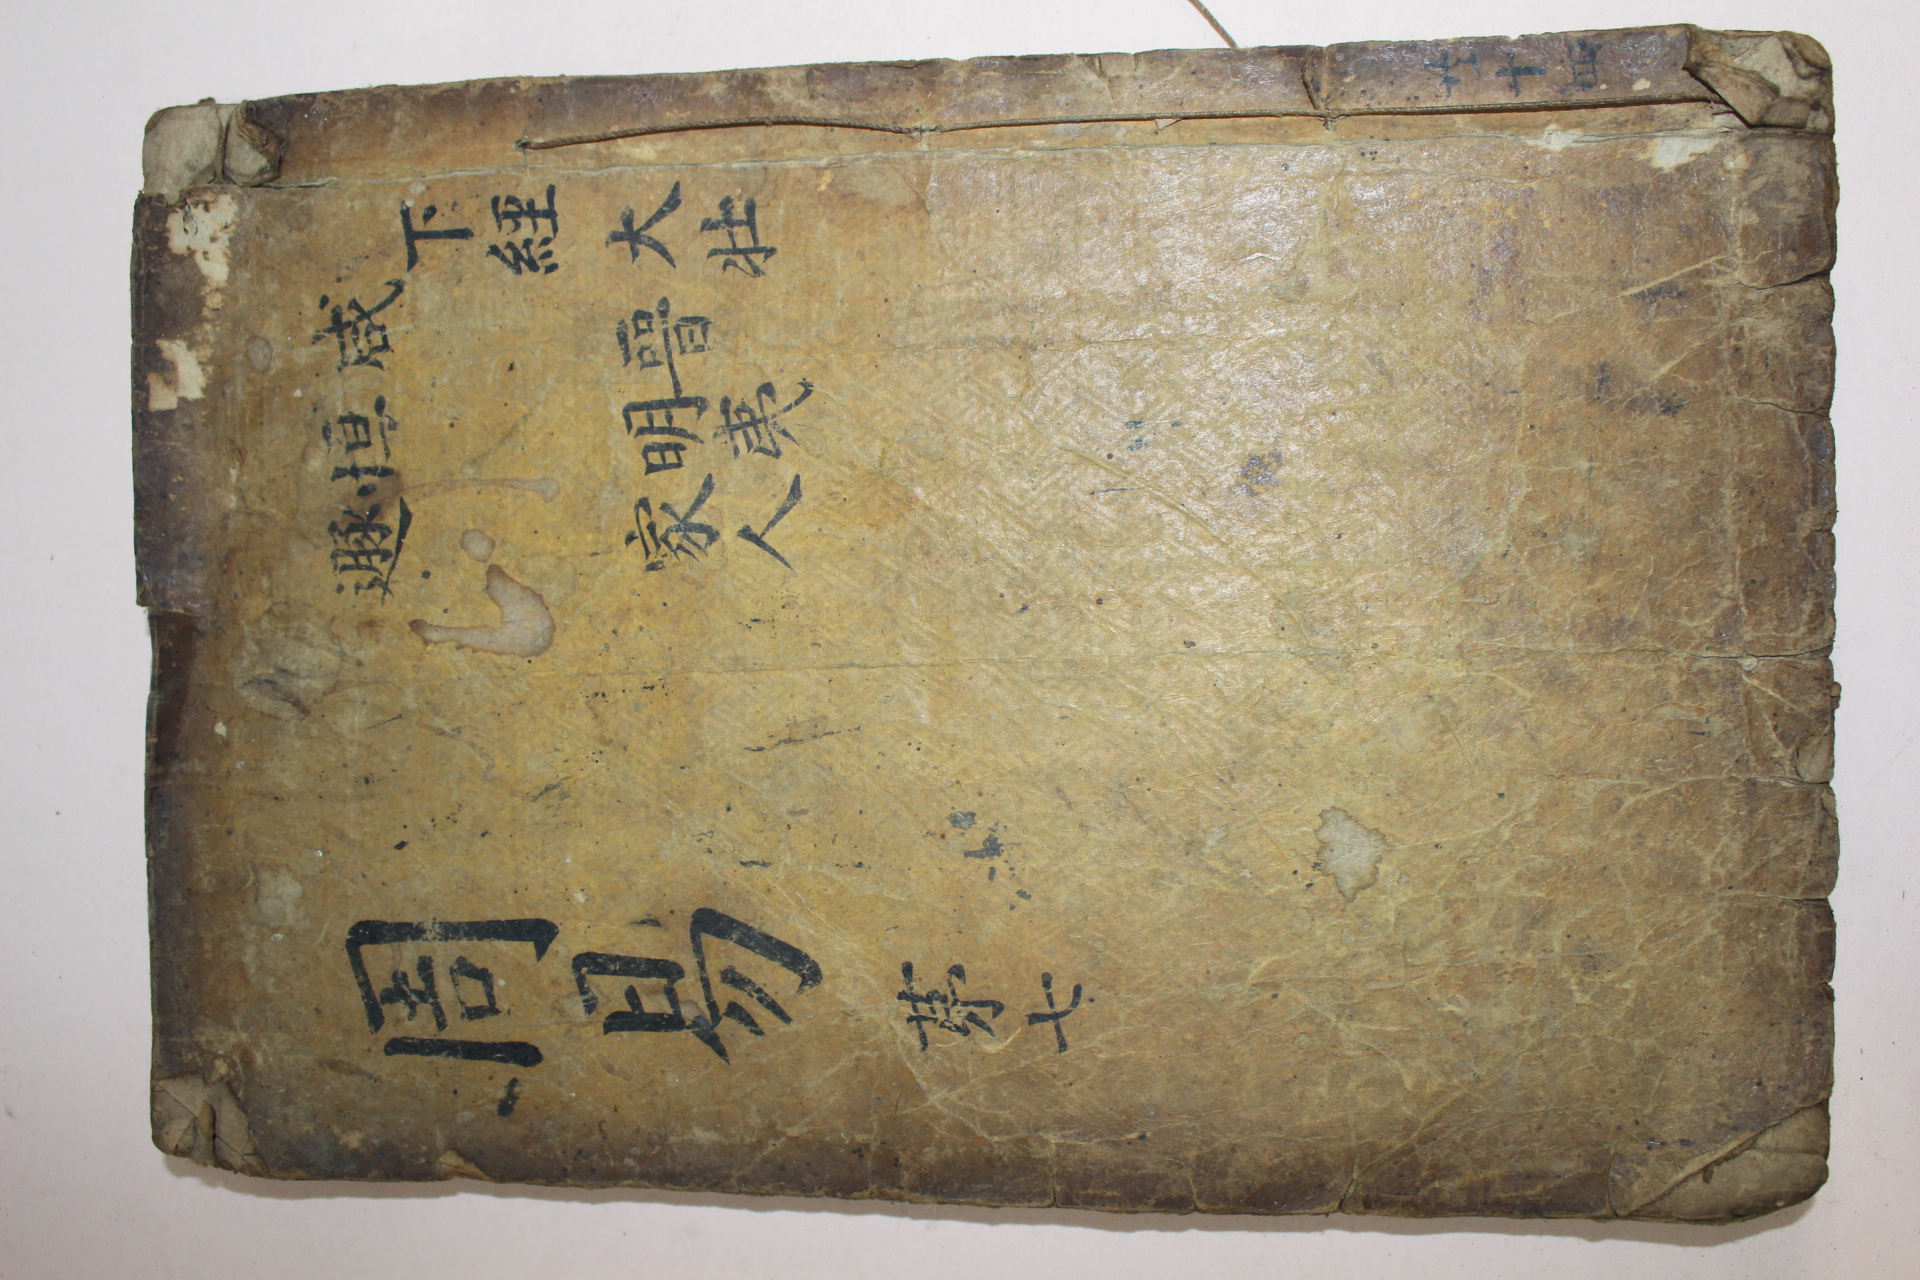 周易 苐七
下經
咸
恒
遯
大壯
晉
明夷
家人
共十四